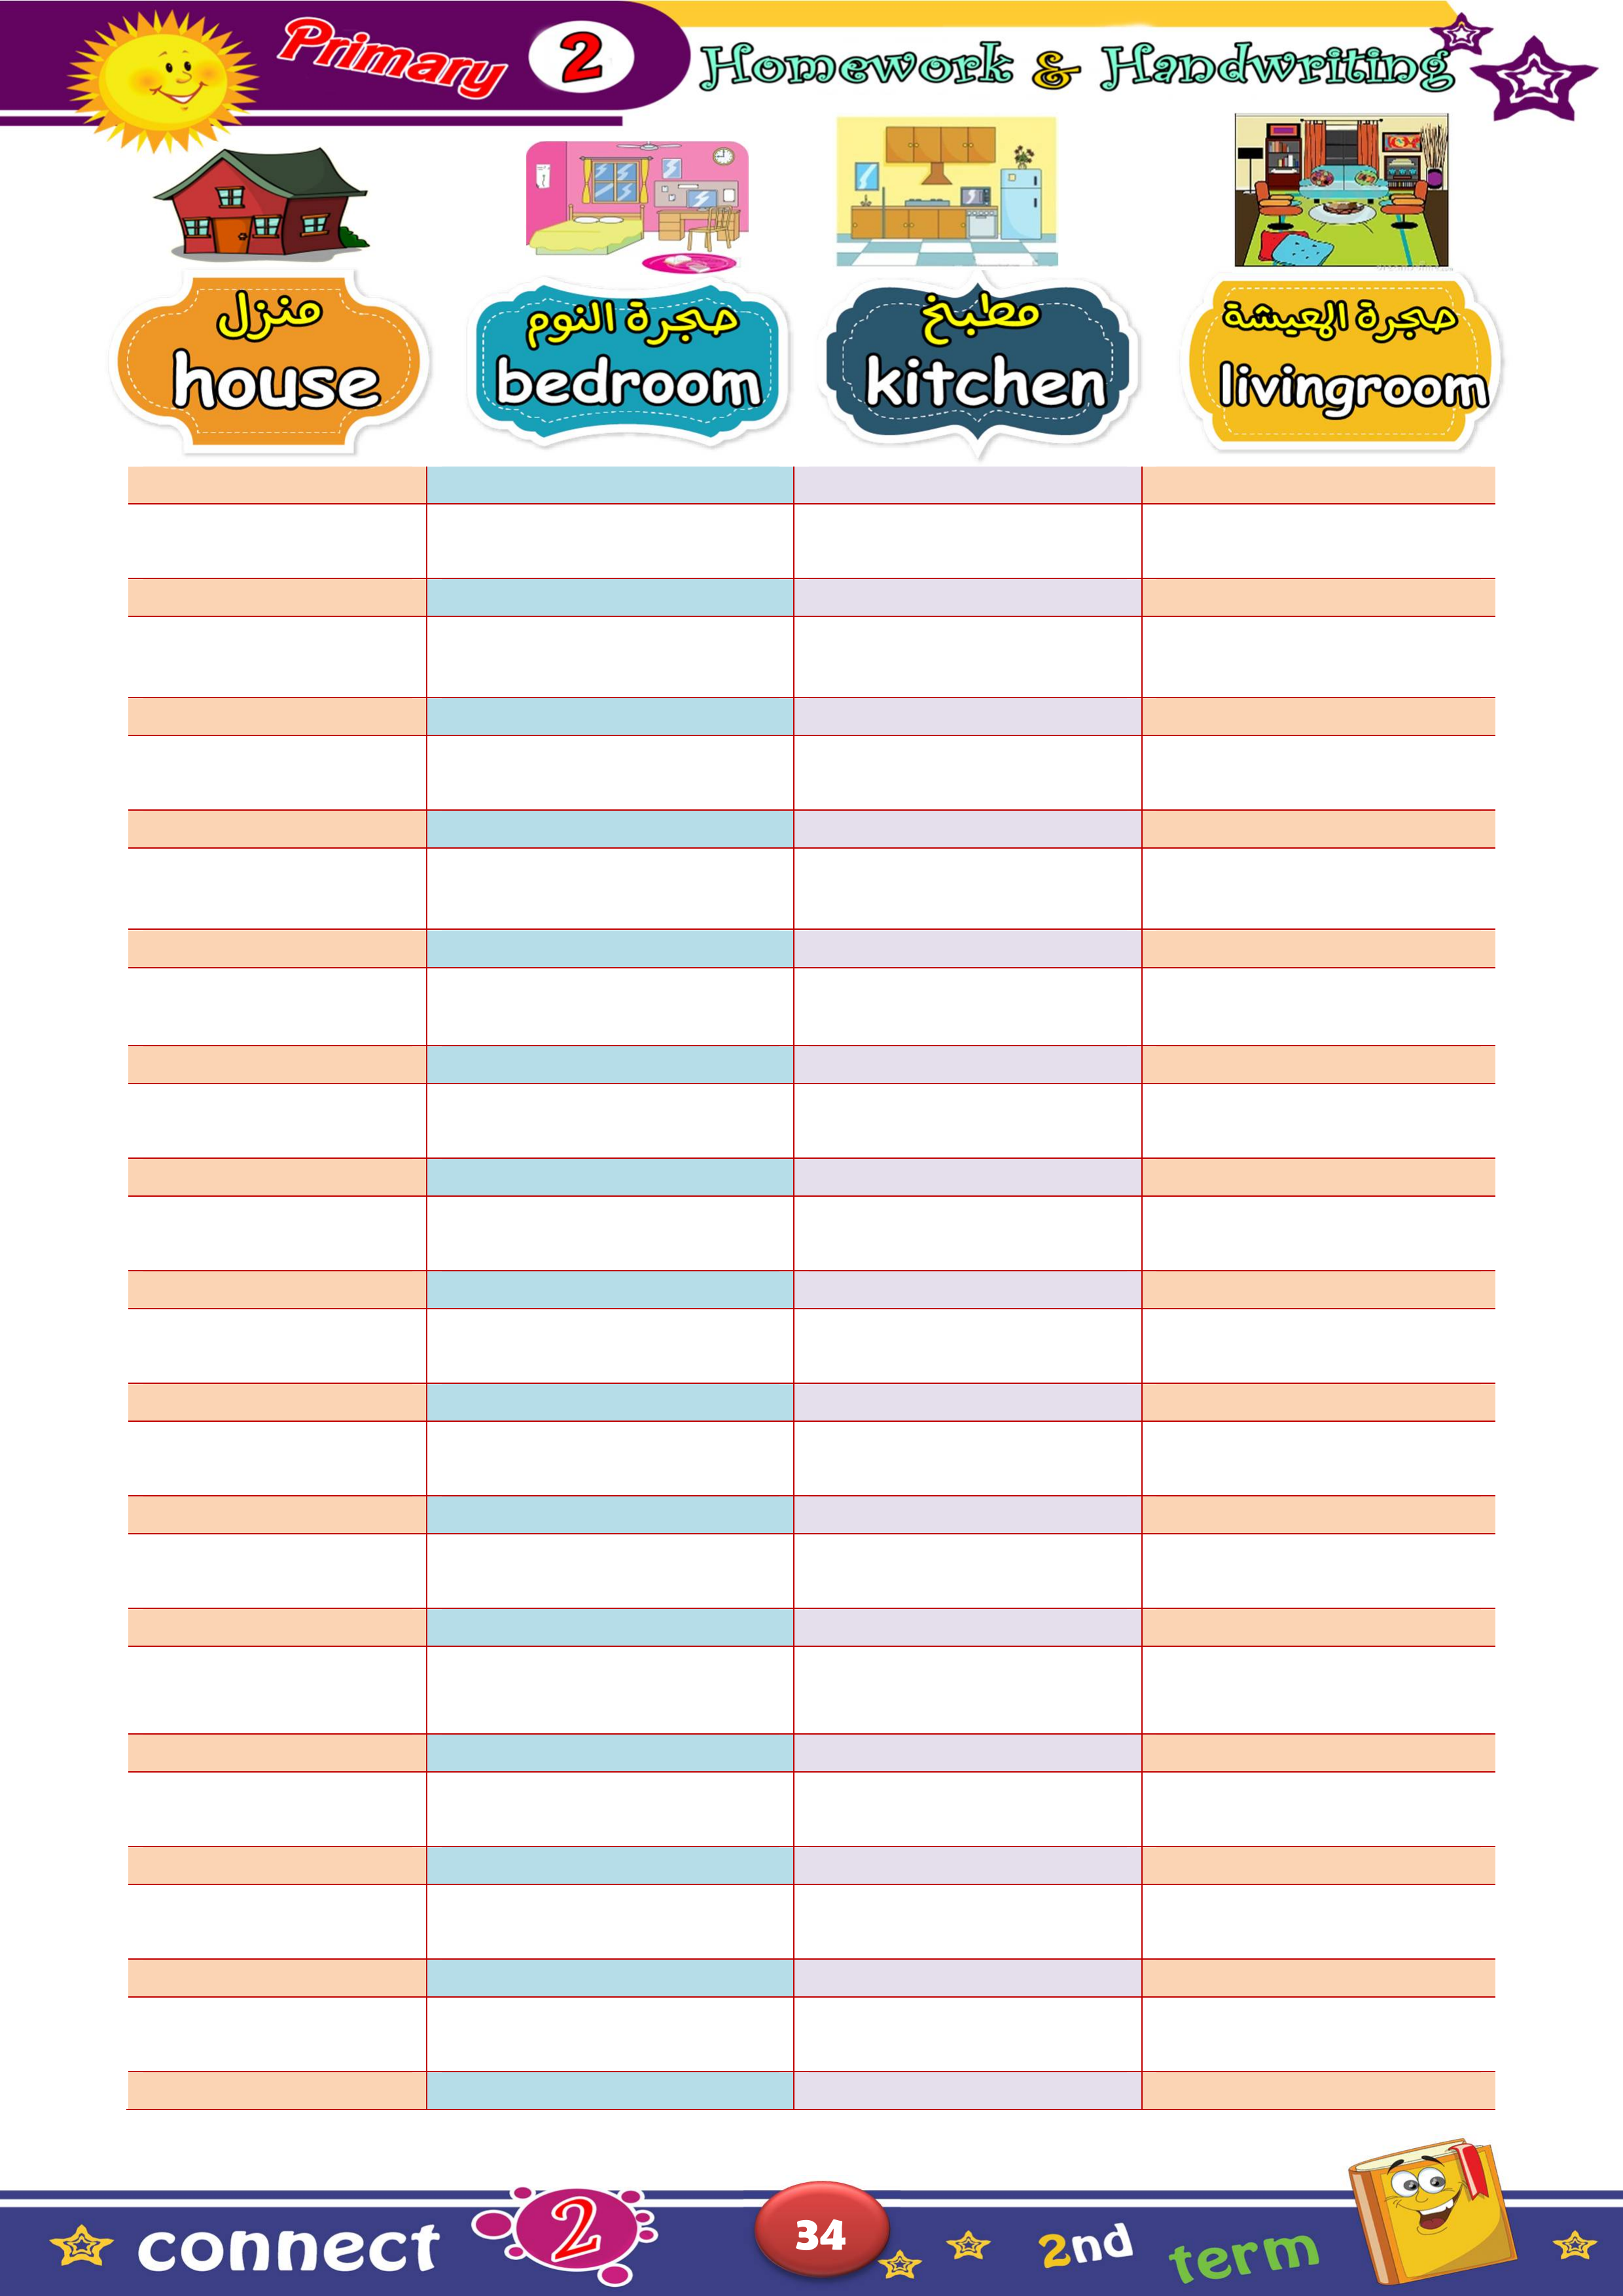 Primary 2 Homework & Handwriting
منزل
house
حجرة النوم
bedroom
مطبخ
kitchen
حجرة المعيشة
livingroom
connect 2 34 2nd term